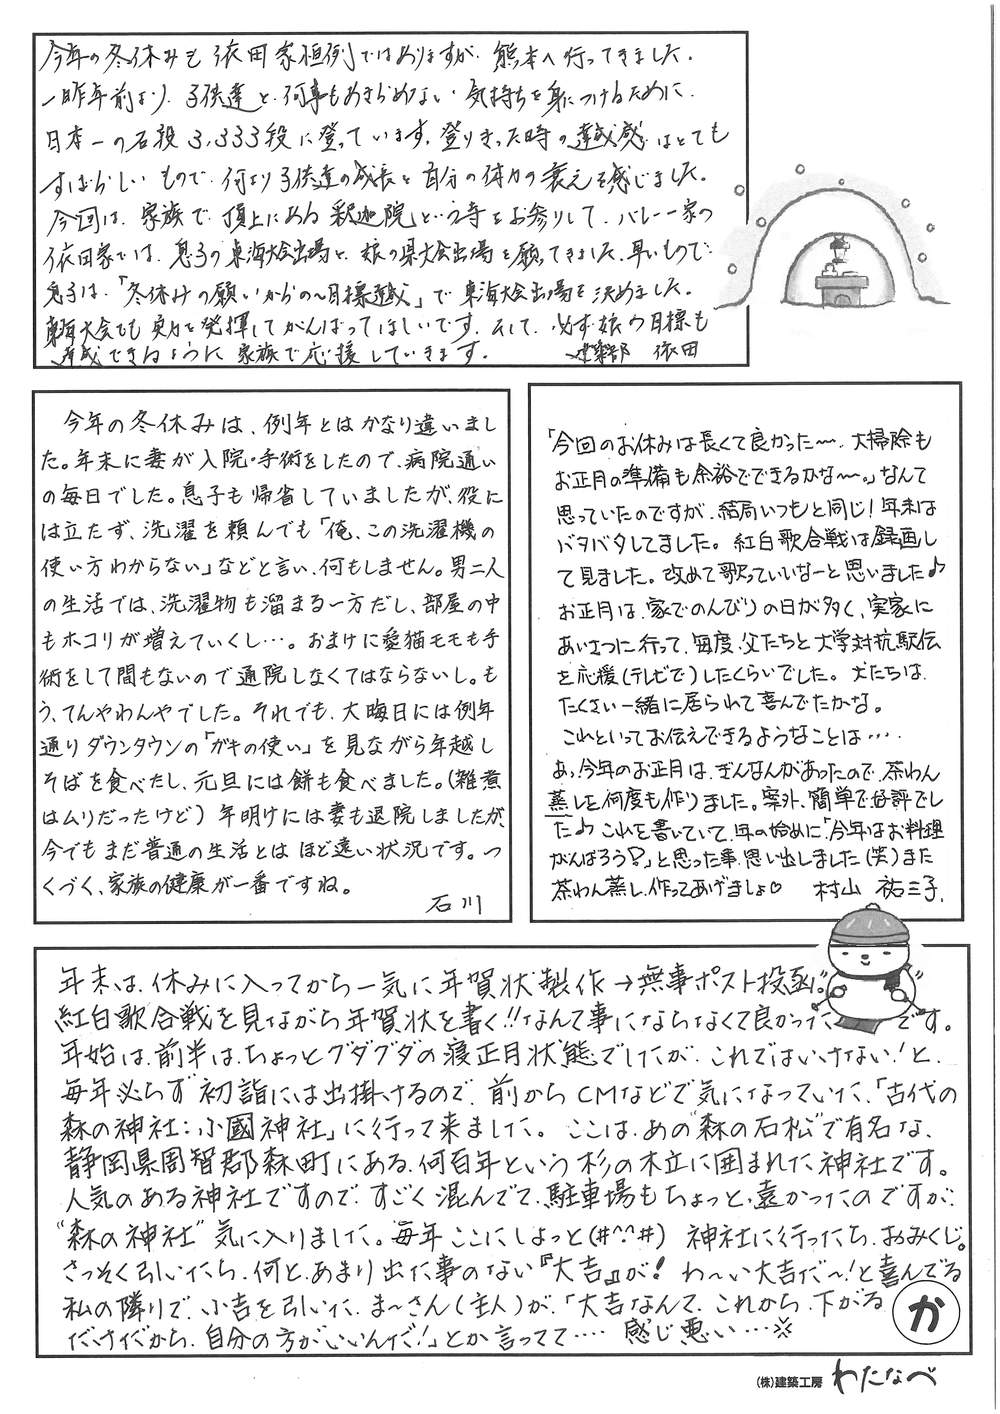 今年の冬休みも依田家恒例ではありますが、熊本へ行ってきました。
一昨年前より、子供達と、何事もあきらめない気持ちを身につけるために、
日本一の石段3,333段に登っています。登りきった時の達成感はとても
すばらしいもので、何より子供達の成長と自分の体力の衰えを感じました。
今回は、家族で、頂上にある釈迦院という寺をお参りして、バレー一家の
依田家では、息子の東海大会出場と、娘の県大会出場を願ってきました。早いもので
息子は、「冬休みの願いからの〜目標達成」で東海大会出場を決めました。
東海大会でも実力を発揮してがんばってほしいです。そして、必ず娘の目標も
達成できるように家族で応援していきます。 建築部 依田
今年の冬休みは、例年とはかなり違いまし
た。年末に妻が入院・手術をしたので、病院通い
の毎日でした。息子も帰省していましたが、役に
は立たず、洗濯を頼んでも「俺、この洗濯機の
使い方わからない」などと言い、何もしません。男二人
の生活では、洗濯物も溜まる一方だし、部屋の中
もホコリが増えていくし…。おまけに愛猫モモも手
術をして間もないので通院しなくてはならないし。も
う、てんやわんやでした。それでも、大晦日には例年
通りダウンタウンの「ガキの使い」を見ながら年越し
そばを食べたし、元旦には餅も食べました。(雑煮
はムリだったけど) 年明けには妻も退院しましたが、
今でもまだ普通の生活とはほど遠い状況です。つ
くづく、家族の健康が一番ですね。
石川
「今回のお休みは長くて良かった〜、大掃除も
お正月の準備も余裕でできるかな〜。」なんて
思っていたのですが、結局いつもと同じ!年末は
バタバタしてました。紅白歌合戦は録画し
て見ました。改めて歌っていいなーと思いました♪
お正月は、家でのんびりの日が多く、実家に
あいさつに行って、毎度、父たちと大学対抗駅伝
を応援(テレビで)したくらいでした。犬たちは、
たくさい一緒に居られて喜んでたかな。
これといってお伝えできるようなことは‥‥
あっ、今年のお正月は、ぎんなんがあったので、茶わん
蒸しを何度も作りました。案外、簡単で好評でし
た♪ これを書いていて、年の始めに「今年はお料理
がんばろう!?」と思った事、思い出しました(笑)また
茶わん蒸し、作ってあげましょ♡ 村山 祐三子.
年末は、休みに入ってから一気に年賀状製作→無事ポスト投函!!
紅白歌合戦を見ながら年賀状を書く!!なんて事にならなくて良かった です。
年始は、前半は、ちょっとグダグダの寝正月状態でしたが、これではいけない!と、
毎年必らず初詣には出掛けるので、前からCMなどで気になっていた、「古代の
森の神社:小國神社」に行って来ました。ここは、あの"森の石松"で有名な、
静岡県周智郡森町にある、何百年という杉の木立に囲まれた神社です。
人気のある神社ですので、すごく混んでて、駐車場もちょっと遠かったのですが、
"森の神社"気に入りました。毎年ここにしよっと(#^^#) 神社に行ったら、おみくじ。
さっそく引いたら、何と、あまり出た事のない『大吉』が! わ〜い大吉だ〜!と喜んでる
私の隣りで、小吉を引いた、ま〜さん(主人)が、「大吉なんて、これから、下がる
だけだから、自分の方がいいんだ!」とか言ってて‥‥ 感じ悪い…
か
(株)建築工房 わたなべ